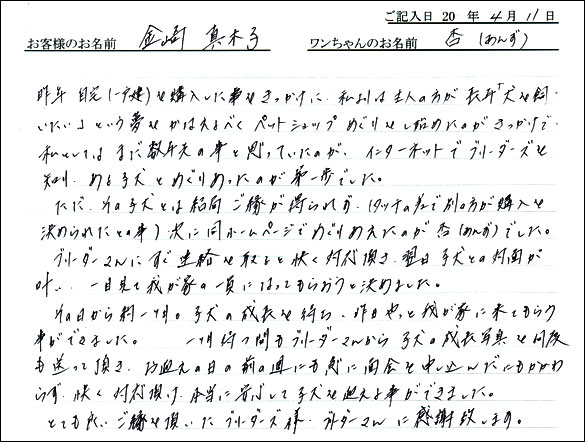 ご記入日 20 年 4月 11日
お客様のお名前 金崎 真木子 ワンちゃんのお名前 杏 (あんず)
昨年 自宅(一戸建)を購入した事をきっかけに、私よりは主人の方が長年「犬を飼
いたい」という夢をかなえるべく ペットショップめぐりをし始めたのがきっかけで、
私としては まだ数年先の事と思っていたのが、インターネットでブリーダーズを
知り、ある子犬とめぐりあったのが第一歩でした。
ただ、その子犬とは結局 ご縁が得られず、(タッチの差で別の方が購入を
決められたとの事) 次に同ホームページでめぐりあえたのが 杏(あんず)でした。
ブリーダーさんにすぐ連絡を取ると快く対応頂き、翌日 子犬との対面が
叶い、一目見て我が家の一員になってもらおうと決めました。
その日から約一ヶ月。子犬の成長を待ち、昨日やっと我が家に来てもらう
事ができました。 一ヶ月待つ間もブリーダーさんから 子犬の成長写真を何度
も送って頂き、お迎えの日の前の週にも急に面会を申し込んだにもかかわ
らず、快く対応頂け、本当に安心して子犬を迎える事ができました。
とても良いご縁を頂いたブリーダーズ様、ブリーダーさんに感謝致します。